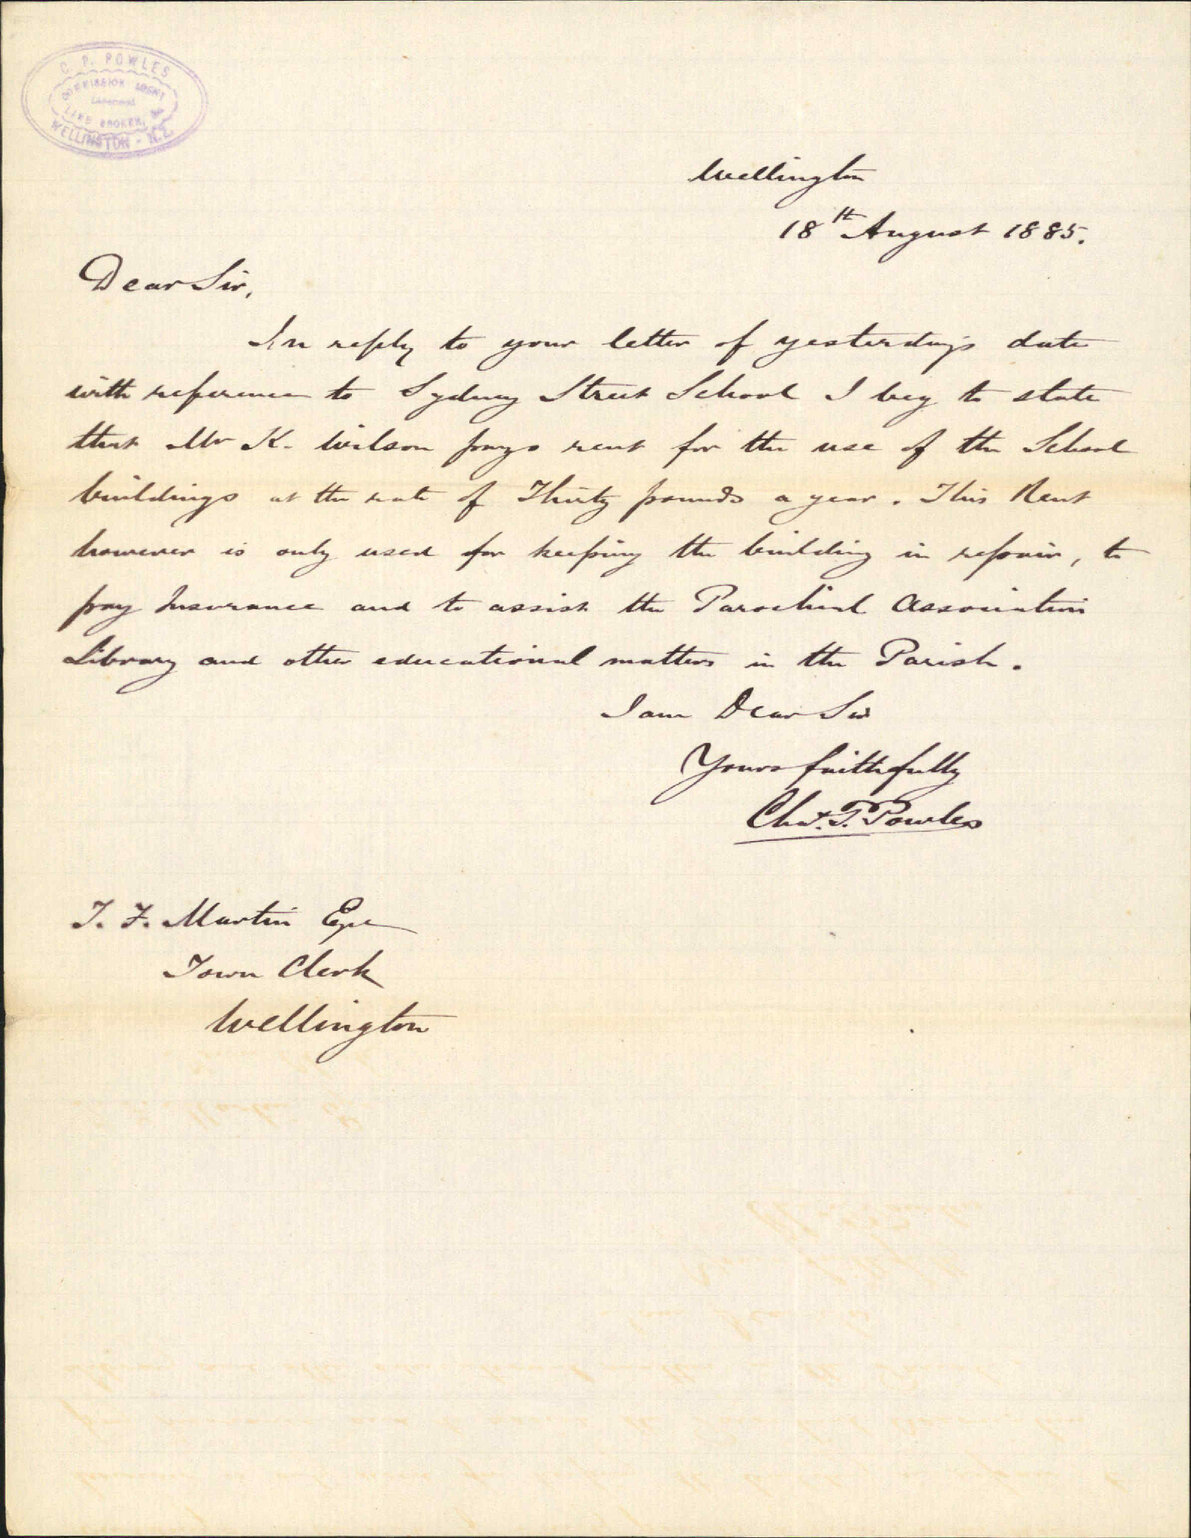 C. P. POWLES
COMMISSION AGENT
LICENSED
LAND BROKER, &c
WELLINGTON - N.Z.
Wellington
18th August 1885.
Dear Sir,
In reply to your letter of yesterday's date
with reference to Sydney Street School I beg to state
that Mr K. Wilson pays rent for the use of the School
buildings at the rate of Thirty pounds a year. This Rent
however is only used for keeping the building in repair, to
pay Insurance and to assist the Parochial Association
Library and other educational matters in the Parish.
I am Dear Sir
Yours faithfully
Chas. P. Powles
J. F. Martin Esqre
Town Clerk
Wellington